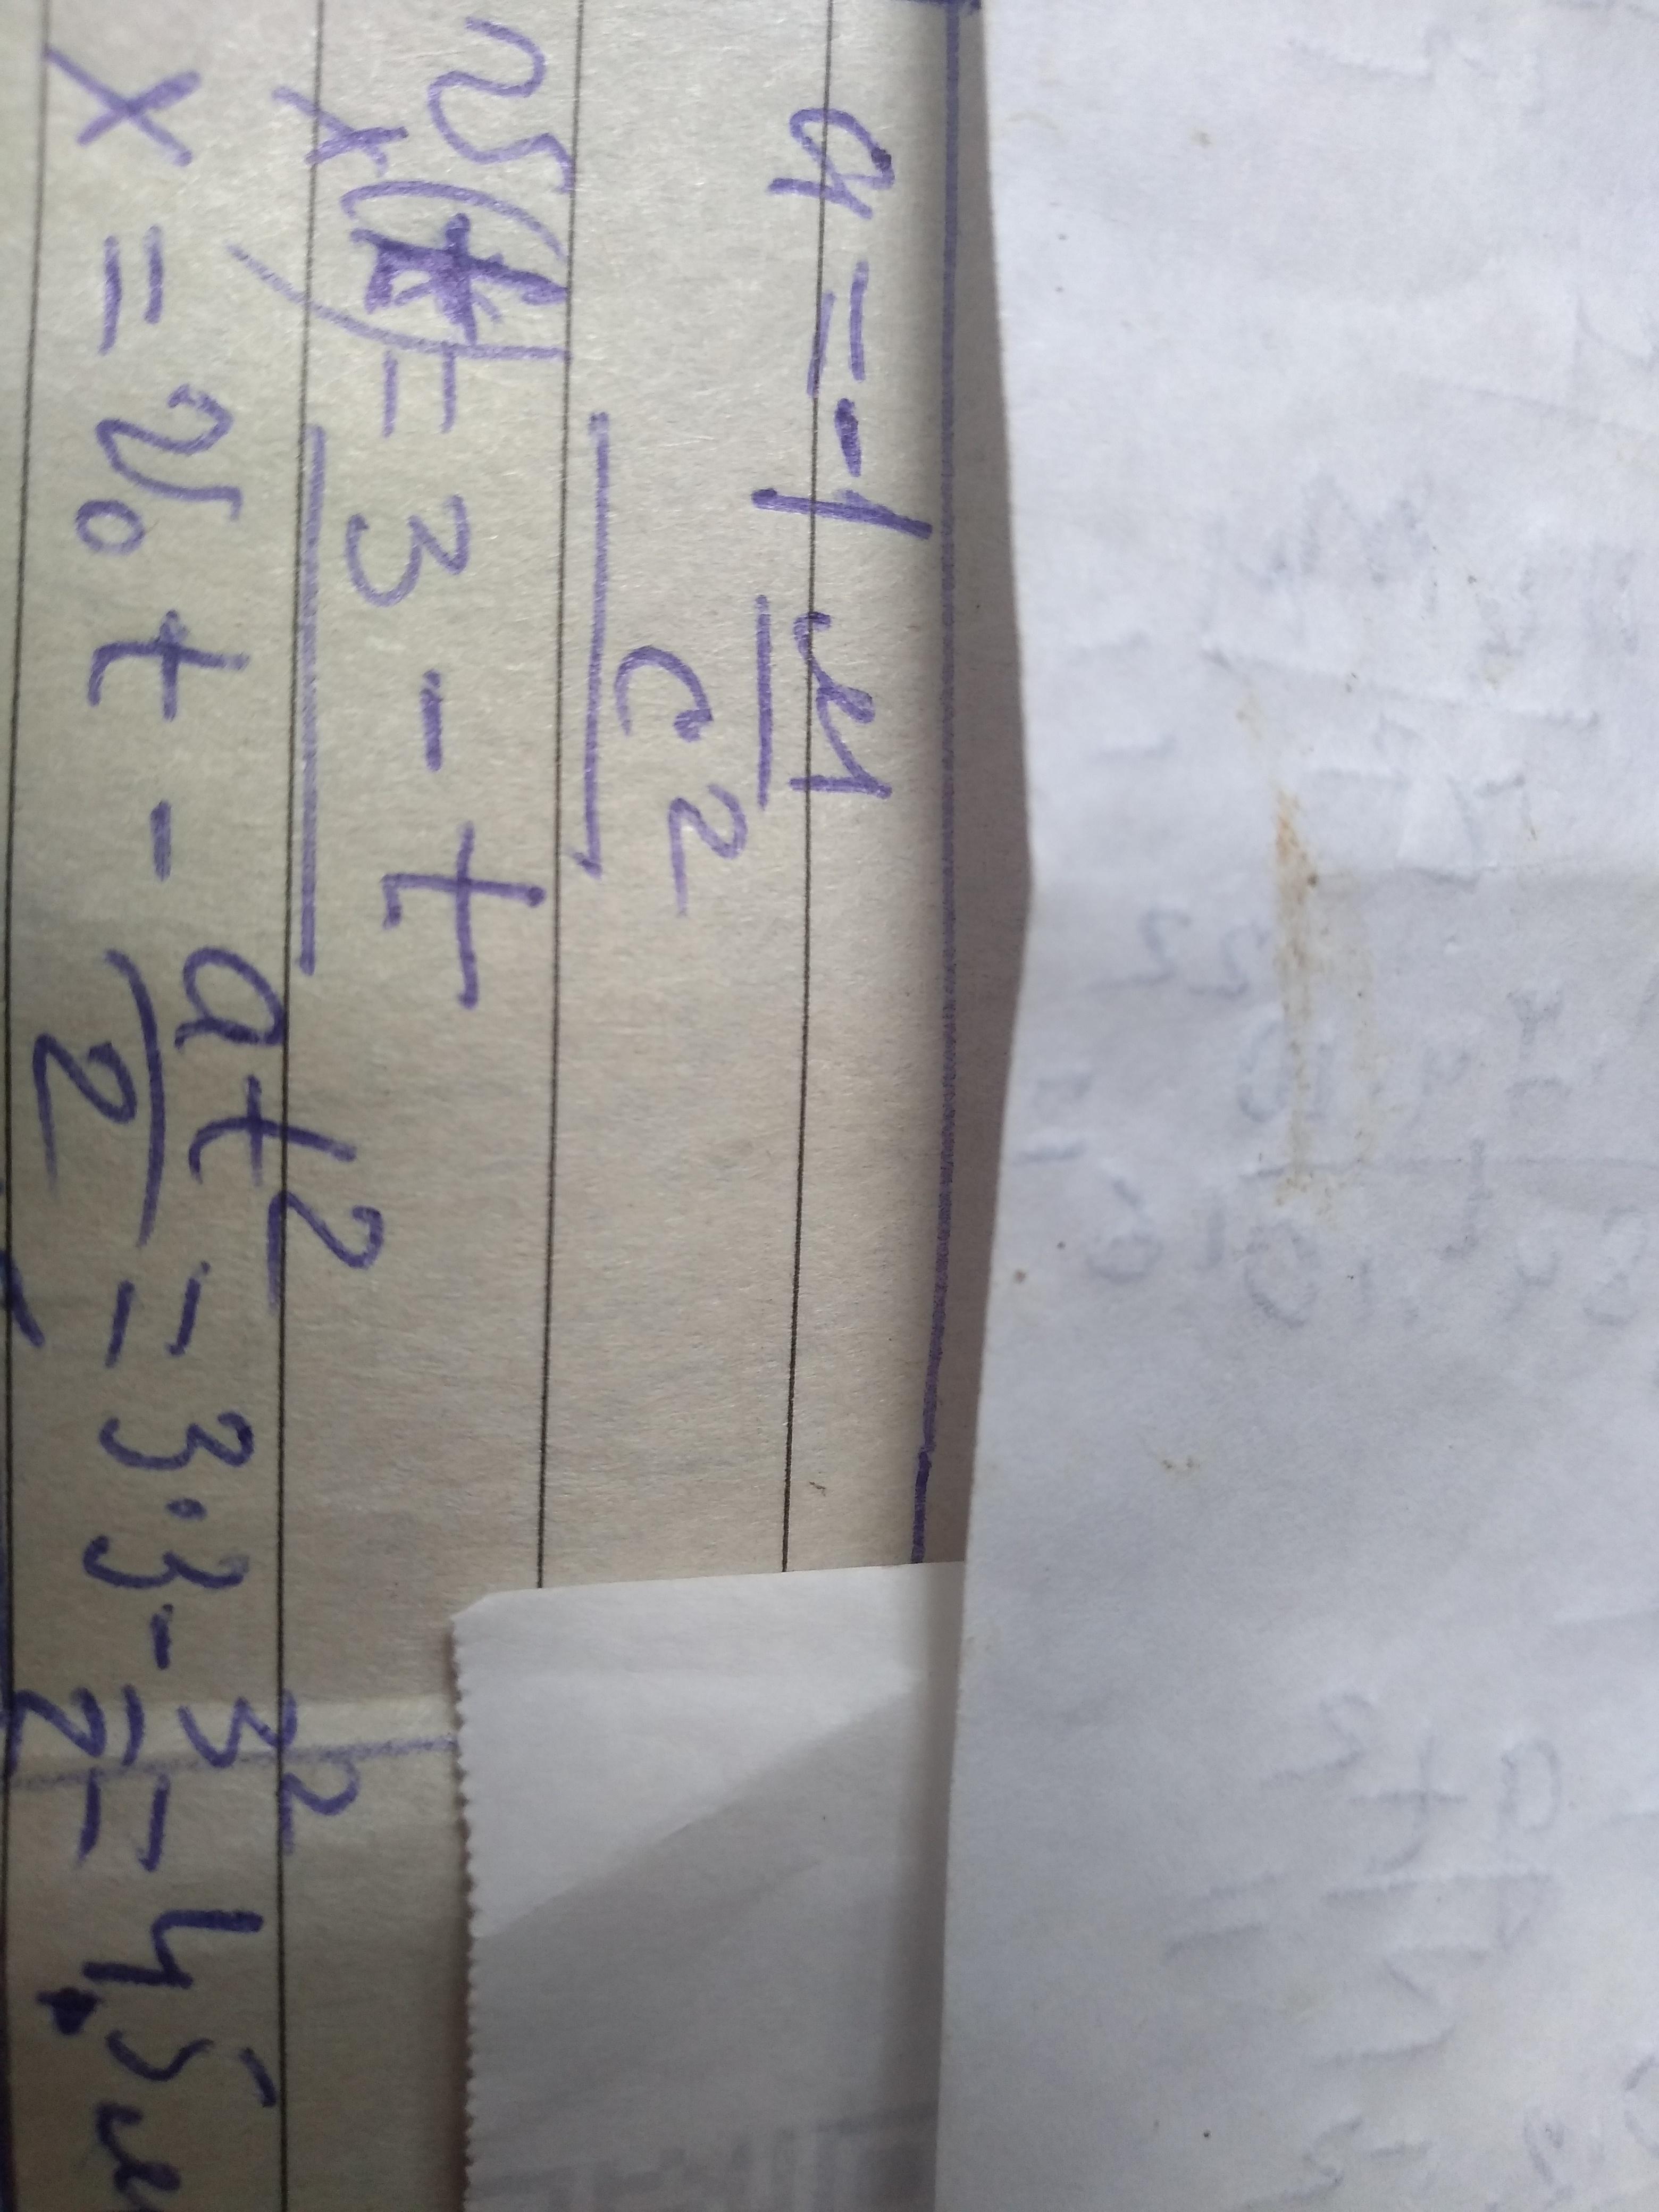 a = -1 м/с²
υx(t) = 3 - t
x = υ₀t - at²/2 = 3·3 - 3²/2 = 4,5м